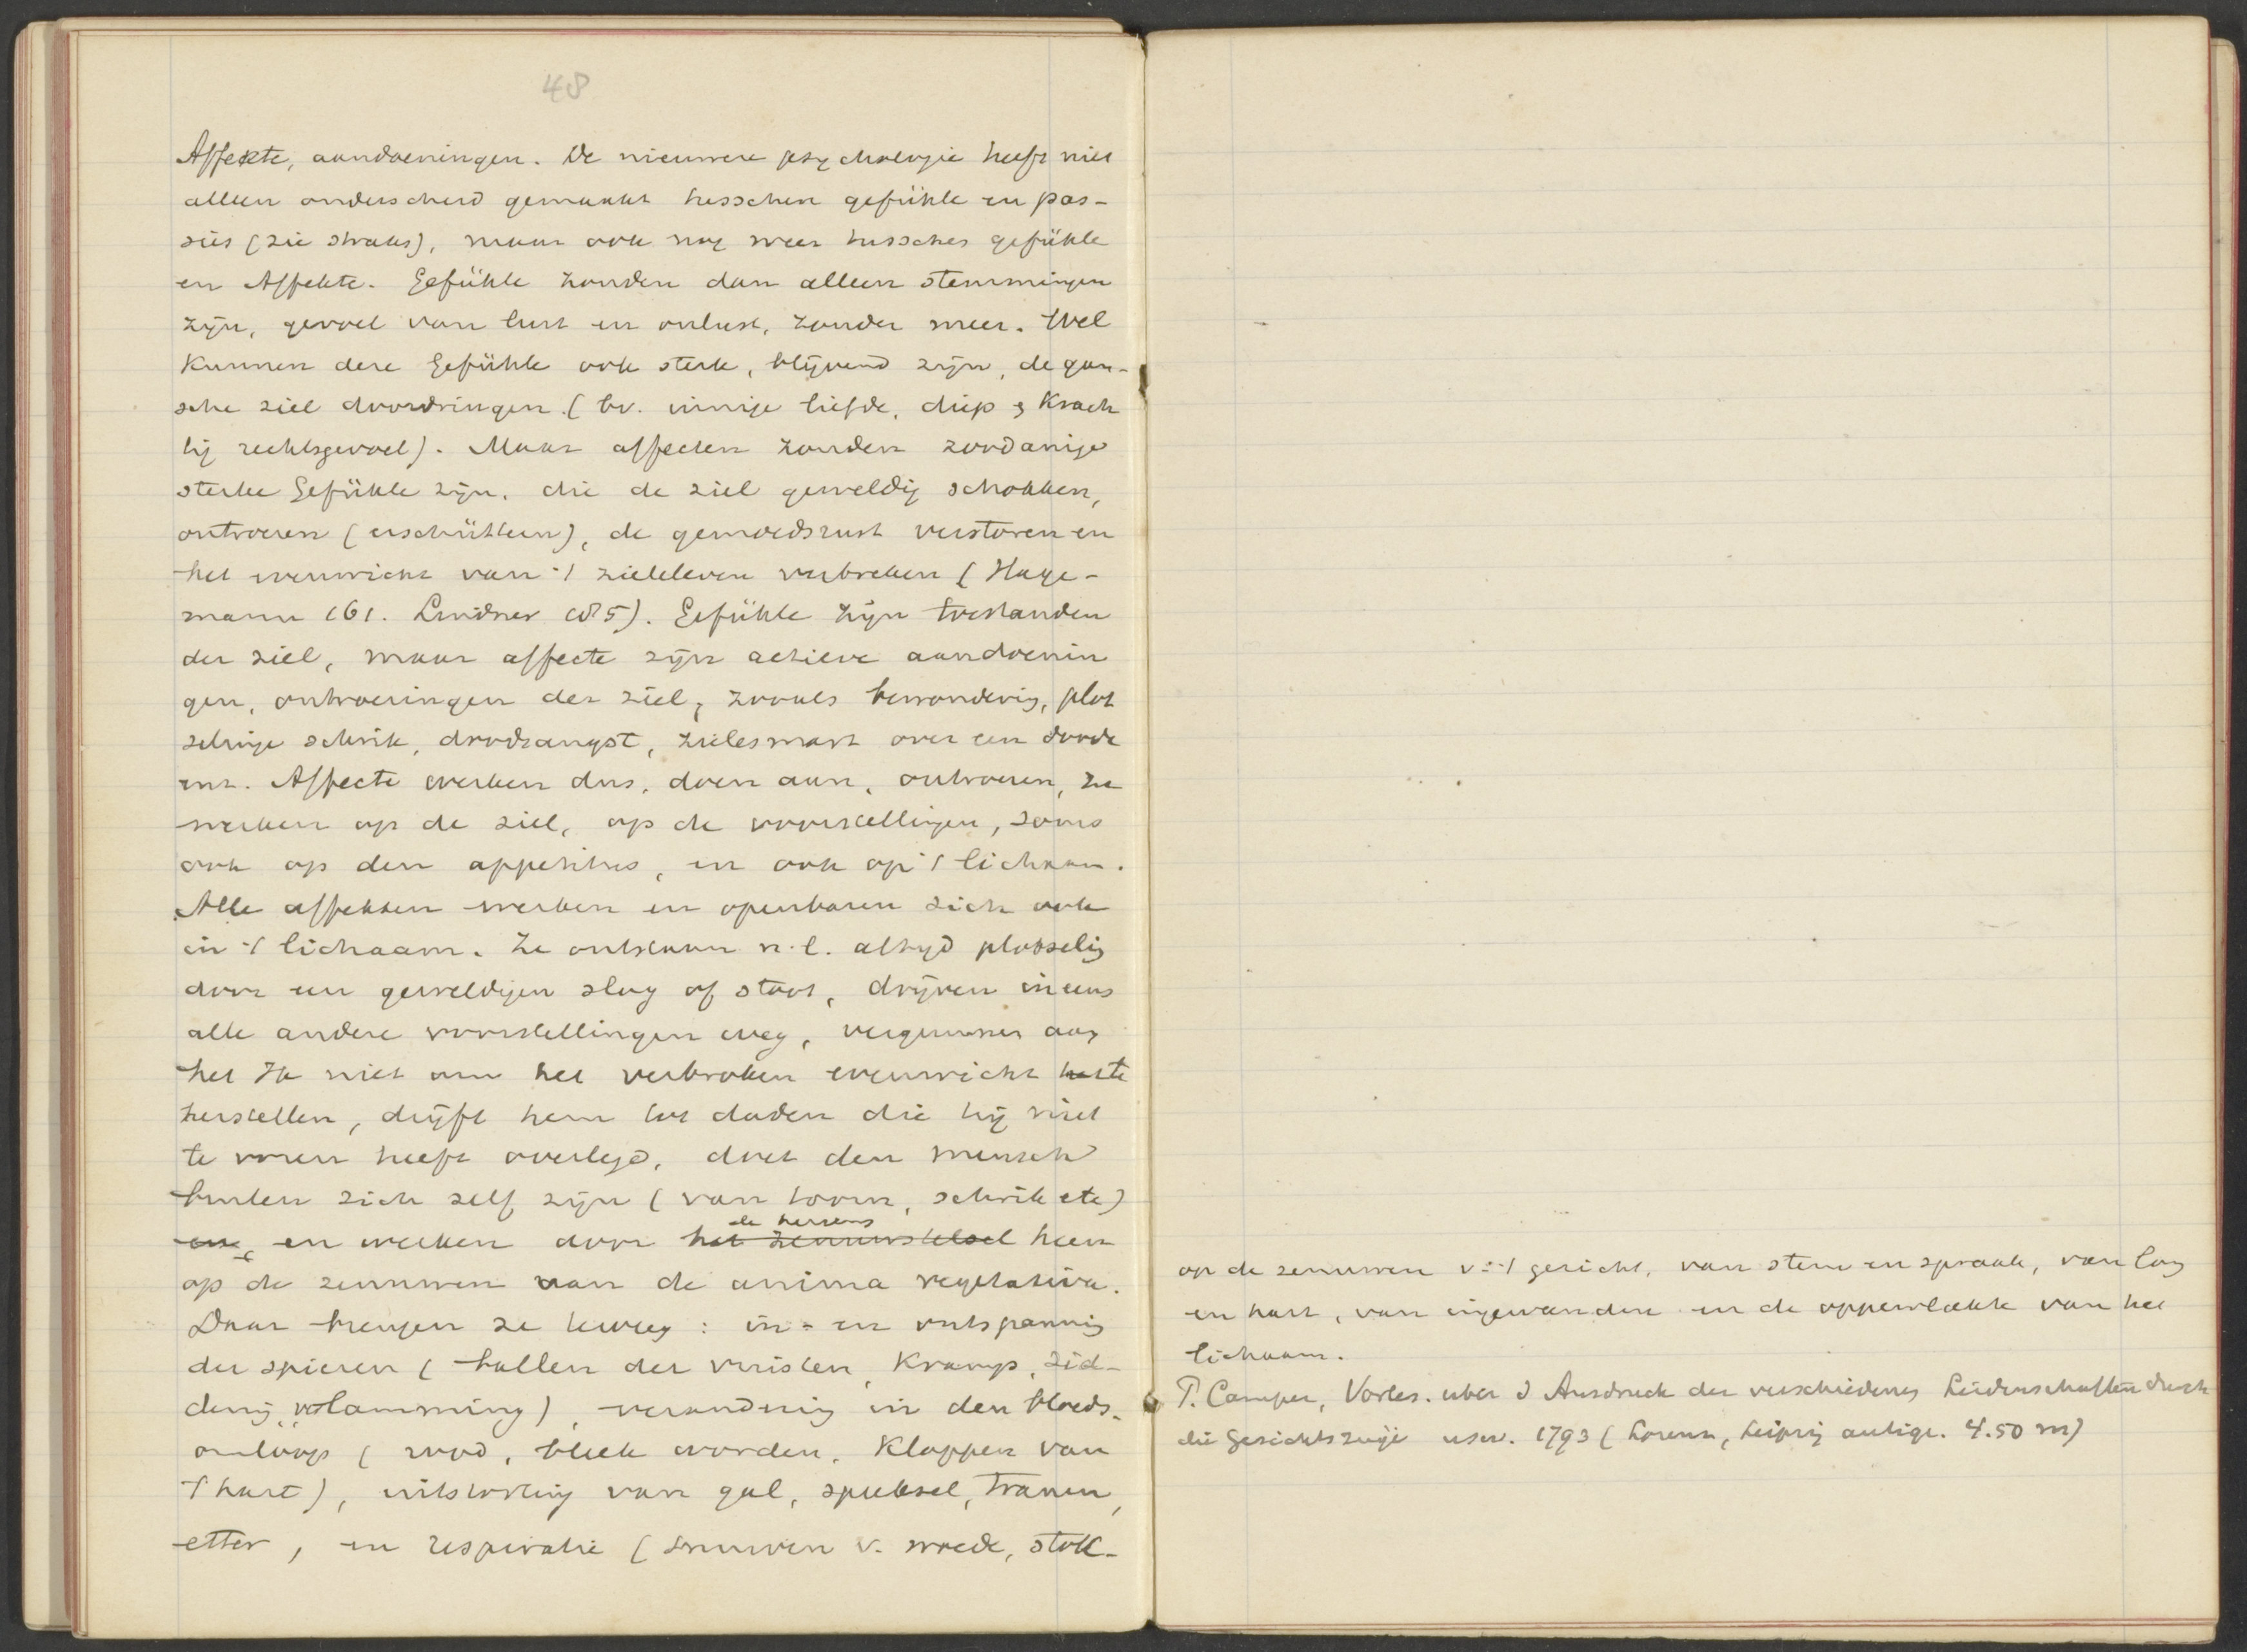 48
Affekte, aandoeningen. De nieuwere psychologie heeft niet
alleen onderscheid gemaakt tusschen gefühle en pas-
sies (zie straks), maar ook nog weer tusschen gefühle
en Affekte. Gefühle zouden dan alleen stemmingen
zijn, gevoel van lust en onlust, zonder meer. Wel
kunnen deze Gefühle ook sterk, blijvend zijn, de gan-
sche ziel doordringen (bv. innige liefde, diep & krach
tig rechtsgevoel). Maar affecten zouden zoodanige
sterke Gefühle zijn, die de ziel geweldig schokken,
ontroeren (erschüttern), de gemoedsrust verstoren en
het evenwicht van 't zieleleven verbreken (Hage-
mann 161. Lindner 185). Gefühle zijn toestanden
der ziel, maar affecte zijn actieve aandoenin
gen, ontroeringen der ziel, zooals bewondering, plot
selinge schrik, doodsangst, zielesmart over een doode
enz. Affecte werken dus, doen aan, ontroeren, ze
werken op de ziel, op de voorstellingen, soms
ook op den appetitus, en ook op 't lichaam.
Alle affekten werken en openbaren zich ook
in 't lichaam. Ze ontstaan n.l. altijd plotselig
door een geweldigen slag of stoot, drijven ineens
alle andere voorstellingen weg, vergunnen aan
het Ik niet om het verbroken evenwicht te
herstellen, drijft hem tot daden die hij niet
te voren heeft overlegd, doet den mensch
buiten zich zelf zijn (van toorn, schrik etc)
en werken door het zenuwstelsel de hersens heen
op de zenuwen van de anima vegetativa.
Daar brengen ze teweeg: in- en ontspanning
der spieren (ballen der vuisten, kramp, sid-
dering, verlamming), verandering in den bloeds-
omloop (rood, bleek worden, kloppen van
't hart), uitstorting van gal, speeksel, tranen,
etter, en respiratie (snuiven v. woede, stok-
op de zenuwen v. 't gezicht, van stem en spraak, van long
en hart, van ingewanden en de oppervlakte van het
lichaam.
P. Camper, Vorles. uber d Ausdruck der verschiedenen Leidenschaften durch
die Gesichtszüge usw. 1793 (Lorenz, Leipzig antiqu. 4.50 m)